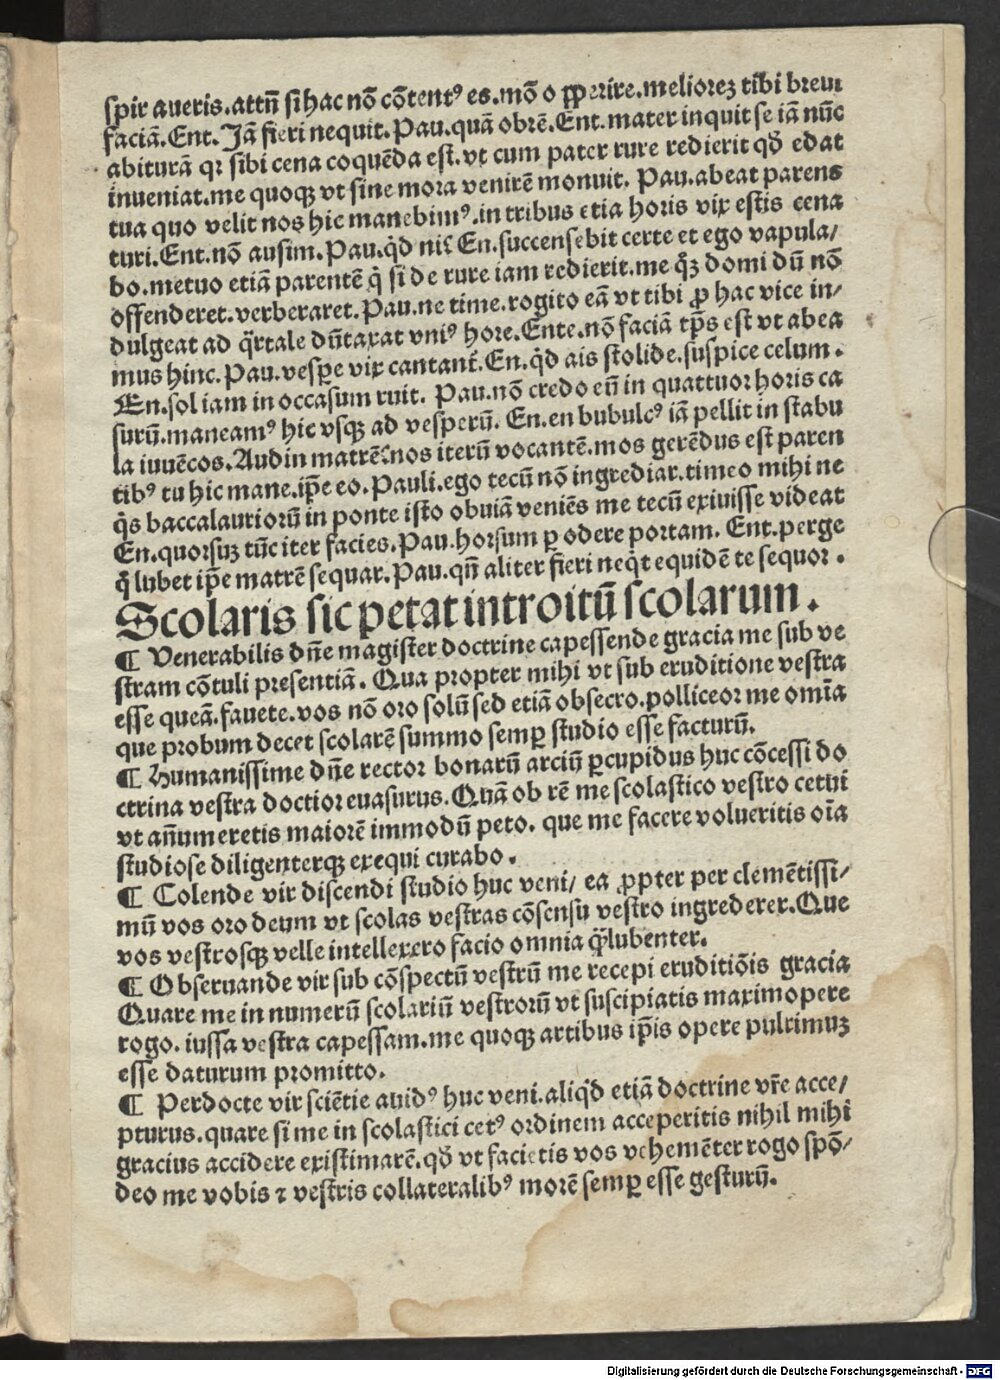 spir aueris.attn̄ si hac nō cōtentꝰ es.mō o ꝓperire.meliorez tibi breui
faciā.Ent.Jā fieri nequit.Pau.quā obrē.Ent.mater inquit se iā nūc
abiturā qꝛ sibi cena coquēda est.vt cum pater rure redierit qđ edat
inueniat.me quoqꝫ vt sine mora venirē monuit. Pau.abeat parens
tua quo velit nos hic manebimꝰ.in tribus etia horis vix estis cena
turi.Ent.nō ausim.Pau.q̇d ni⸮ En.succensebit certe et ego vapula/
bo.metuo etiā parentē q̇ si de rure iam redierit.me q̄ꝫ domi dū nō
offenderet.verberaret.Pau.ne time.rogito eā vt tibi ꝓ hac vice in/
dulgeat ad q̈rtale dūtaxat vniꝰ hore.Ente.nō faciā tp̄s est vt abea
mus hinc.Pau.vespe vix cantant̄.En.q̇d ais stolide.suspice celum.
En.sol iam in occasum ruit. Pau.nō credo en̄ in quattuor horis ca
surū.maneamꝰ hic vsqꝫ ad vesperū. En.en bubulcꝰ iā pellit in stabu
la iuuēcos.Audin matrē⸮nos iterū vocantē.mos gerēdus est paren
tibꝰ tu hic mane.ip̄e eo.Pauli.ego tecū nō ingrediar.timeo mihi ne
q̇s baccalauriorū in ponte isto obuiā veniēs me tecū exiuisse videat
En.quorsuz tūc iter facies.Pau.horsum ꝑ odere portam. Ent.perge
q̄ lubet ip̄e matrē sequar.Pau.qn̄ aliter fieri neq̇t equidē te sequor.
Scolaris sic petat introitū scolarum.
¶ Venerabilis dn̄e magister doctrine capessende gracia me sub ve
stram cōtuli presentiā. Qua propter mihi vt sub eruditione vestra
esse queā.fauete.vos nō oro solū sed etiā obsecro.polliceor me omīa
que probum decet scolarē summo semꝑ studio esse facturū.
¶ Humanissime dn̄e rector bonarū arciū ꝑcupidus huc cōcessi do
ctrina vestra doctior euasurus.Quā ob rē me scolastico vestro cetui
vt an̄umeretis maiorē immodū peto. que me facere volueritis oīa
studiose diligenterqꝫ exequi curabo.
¶ Colende vir discendi studio huc veni/ ea ꝓpter per clemētissi/
mū vos oro deum vt scolas vestras cōsensu vestro ingrederer.Que
vos vestrosqꝫ velle intellexero facio omnia q̄ꝫlubenter.
¶ Obseruande vir sub cōspectū vestrū me recepi eruditiōis gracia
Quare me in numerū scolariū vestrorū vt suscipiatis maximopere
rogo. iussa vestra capessam.me quoqꝫ artibus ip̄is opere pulcrimuꝫ
esse daturum promitto.
¶ Perdocte vir sciētie auidꝰ huc veni.aliq̇d etiā doctrine vr̄e acce/
pturus.quare si me in scolastici cetꝰ ordinem acceperitis nihil mihi
gracius accidere existimarē.qđ vt facietis vos vehemēter rogo spō/
deo me vobis ⁊ vestris collateralibꝰ morē semꝑ esse gesturū.
Digitalisierung gefördert durch die Deutsche Forschungsgemeinschaft - DFG